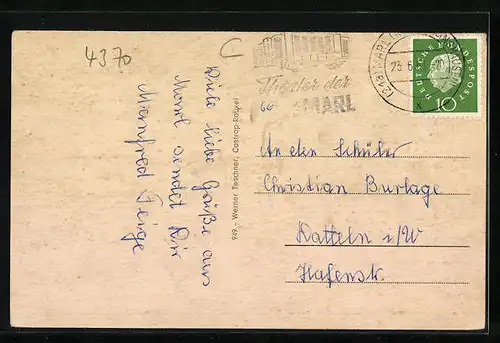 4370
Viele liebe Grüße aus
Marl sendet Dir
Manfred
969 - Werner Teschner, Castrop-Rauxel
Theater der
MARL
66
(21a) MARL
23.6.
DEUTSCHE BUNDESPOST
10
An den Schüler
Christian Burlage
Datteln i/W
Hafenstr.